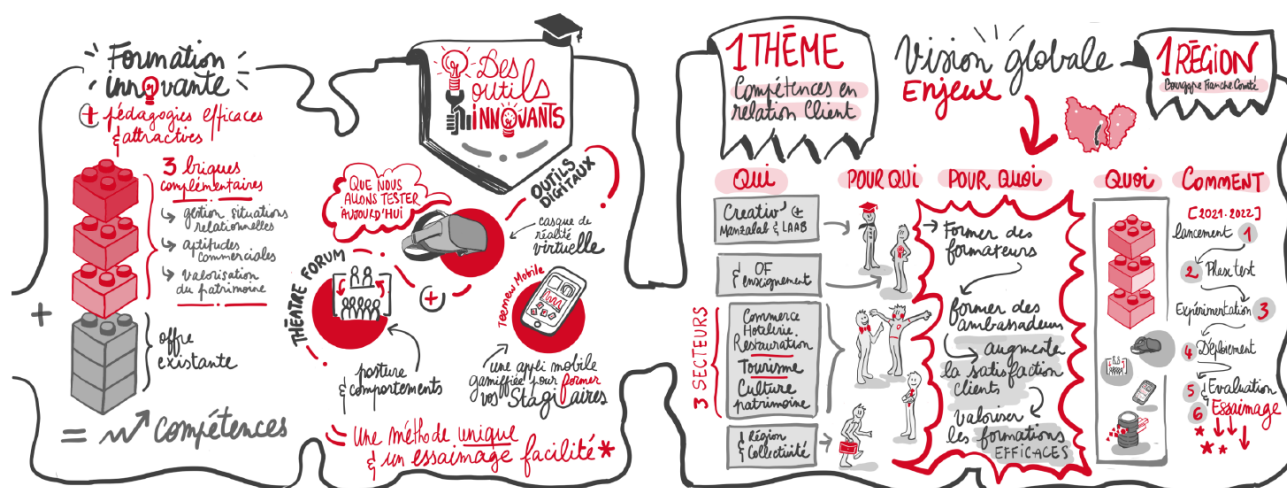 Formation
innovante
+ pédagogies efficaces
& attractives
3 briques
complémentaires
gestion situations
relationnelles
aptitudes
commerciales
valorisation
du patrimoine
+
offre
existante
= compétences
Des
outils
INNOVANTS
QUE NOUS
ALLONS TESTER
AUJOURD'HUI
OUTILS
DIGITAUX
casque de
réalité
virtuelle
THÉATRE FORUM
+
posture
& comportements
Teemew Mobile
une appli mobile
gamifiée pour former
vos Stagiaires
Une méthode unique
& un essaimage facilité *
1 THÈME
Compétences en
relation Client
Vision globale
Enjeux
1 RÉGION
Bourgogne Franche Comté
QUI
Creativ' &
Manzalab & LAAB
& OF
enseignement
3 SECTEURS
Commerce
Hotelerie
Restauration
Tourisme
Culture
patrimoine
Région
& Collectivité
POUR QUI
POUR QUOI
Former des
formateurs
Former des
ambassadeurs
augmenter
la satisfaction
clients
valoriser
les formations
EFFICACES
QUOI
COMMENT
[2021-2022]
lancement 1
2 Phase test
Expérimentation 3
4 Déploiement
5 Evaluation
6 Essaimage